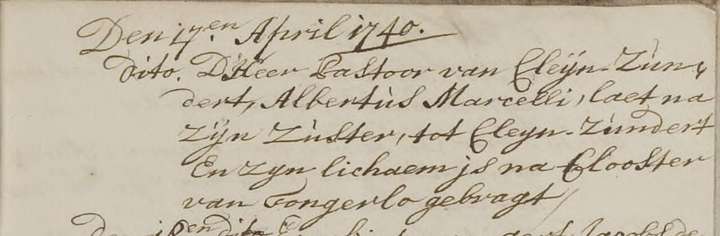 Den 17.en April 1740.
dito. D'Heer Pastoor van Cleijn-Zun-
dert, Albertus Marcelli, laet na
zijn Zuster, tot Cleyn-Zundert
En zyn lichaem js na Clooster
van Tongerlo gebragt